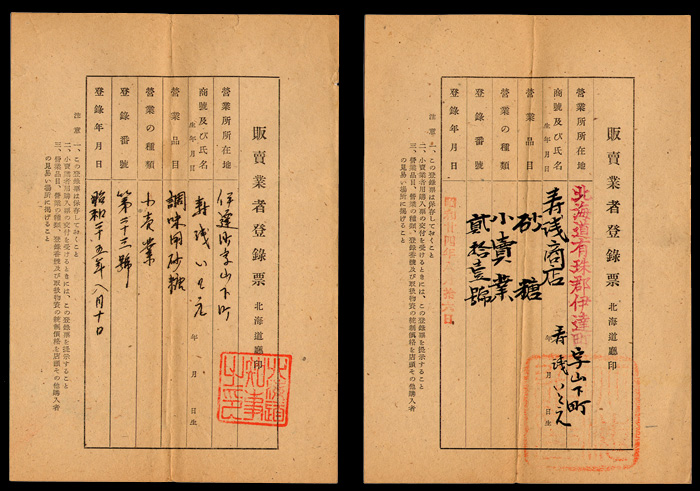 販賣業者登錄票 北海道廳印
營業所所在地 伊達町字山下町
商號及び氏名
生年月日 年 月 日生
營業品目 調味用砂糖
營業の種類 小賣業
登錄番號 第二十三號
登錄年月日 昭和二十五年八月十日
注意 一、この登錄票は保存しておくこと
二、小賣業者用購入票の交付を受けるときには、この登錄票を提示すること
三、營業品目、營業の種類、登錄番號及び取扱物資の統制價格を店頭その他購入者
の見易い場所に掲げること
北海道
知事
之印
販賣業者登錄票 北海道廳印
營業所所在地 北海道有珠郡伊達町字山下町
商號及び氏名 商店
生年月日 年 月 日生
營業品目 砂糖
營業の種類 小賣業
登錄番號 貳拾壹號
登錄年月日 昭和廿四年 拾六日
注意 一、この登錄票は保存しておくこと
二、小賣業者用購入票の交付を受けるときには、この登錄票を提示すること
三、營業品目、營業の種類、登錄番號及び取扱物資の統制價格を店頭その他購入者
の見易い場所に掲げること